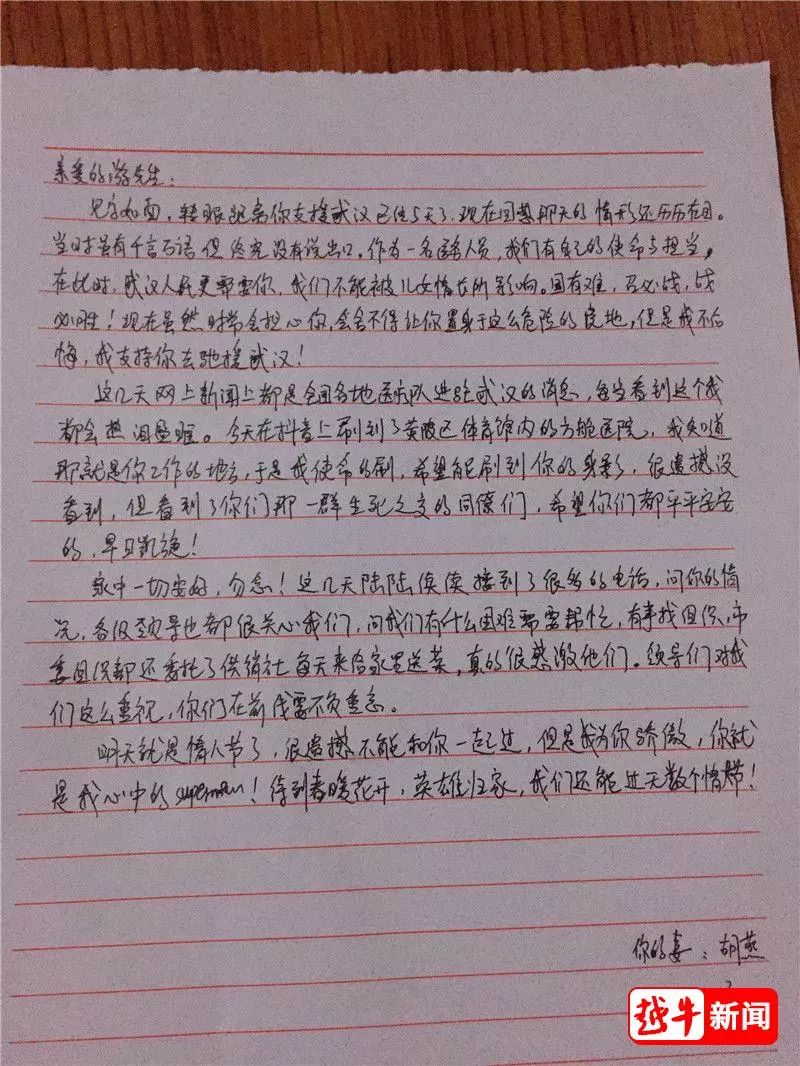 亲爱的游先生：
见字如面，转眼距离你支援武汉已经5天了，现在回想那天的情形还历历在目。
当时虽有千言万语但终究没有说出口。作为一名医务人员，我们有自己的使命与担当，
在此时，武汉人民更需要你，我们不能被儿女情长所影响。国有难，召必战，战
必胜！现在虽然时常会担心你，会舍不得让你置身于这么危险的境地，但是我不后
悔，我支持你去驰援武汉！
这几天网上新闻上都是全国各地医疗队进驻武汉的消息，每当看到这个我
都会热泪盈眶。今天在抖音上刷到了黄陂区体育馆内的方舱医院，我知道
那就是你工作的地方，于是我使命的刷，希望能刷到你的身影，很遗憾没
看到，但看到了你们那一群生死之交的同僚们，希望你们都平平安安
的，早日凯旋！
家中一切安好，勿念！这几天陆陆续续接到了很多的电话，问你的情
况，各级领导也都很关心我们，问我们有什么困难需要帮忙，有事找组织，市
委组织部还委托了供销社每天来给家里送菜，真的很感激他们。领导们对我
们这么重视，你们在前线要不负重念。
明天就是情人节了，很遗憾不能和你一起过，但是我为你骄傲，你就
是我心中的superman！待到春暖花开，英雄归家，我们还能过无数个情人节！
你的妻：胡燕
越牛新闻